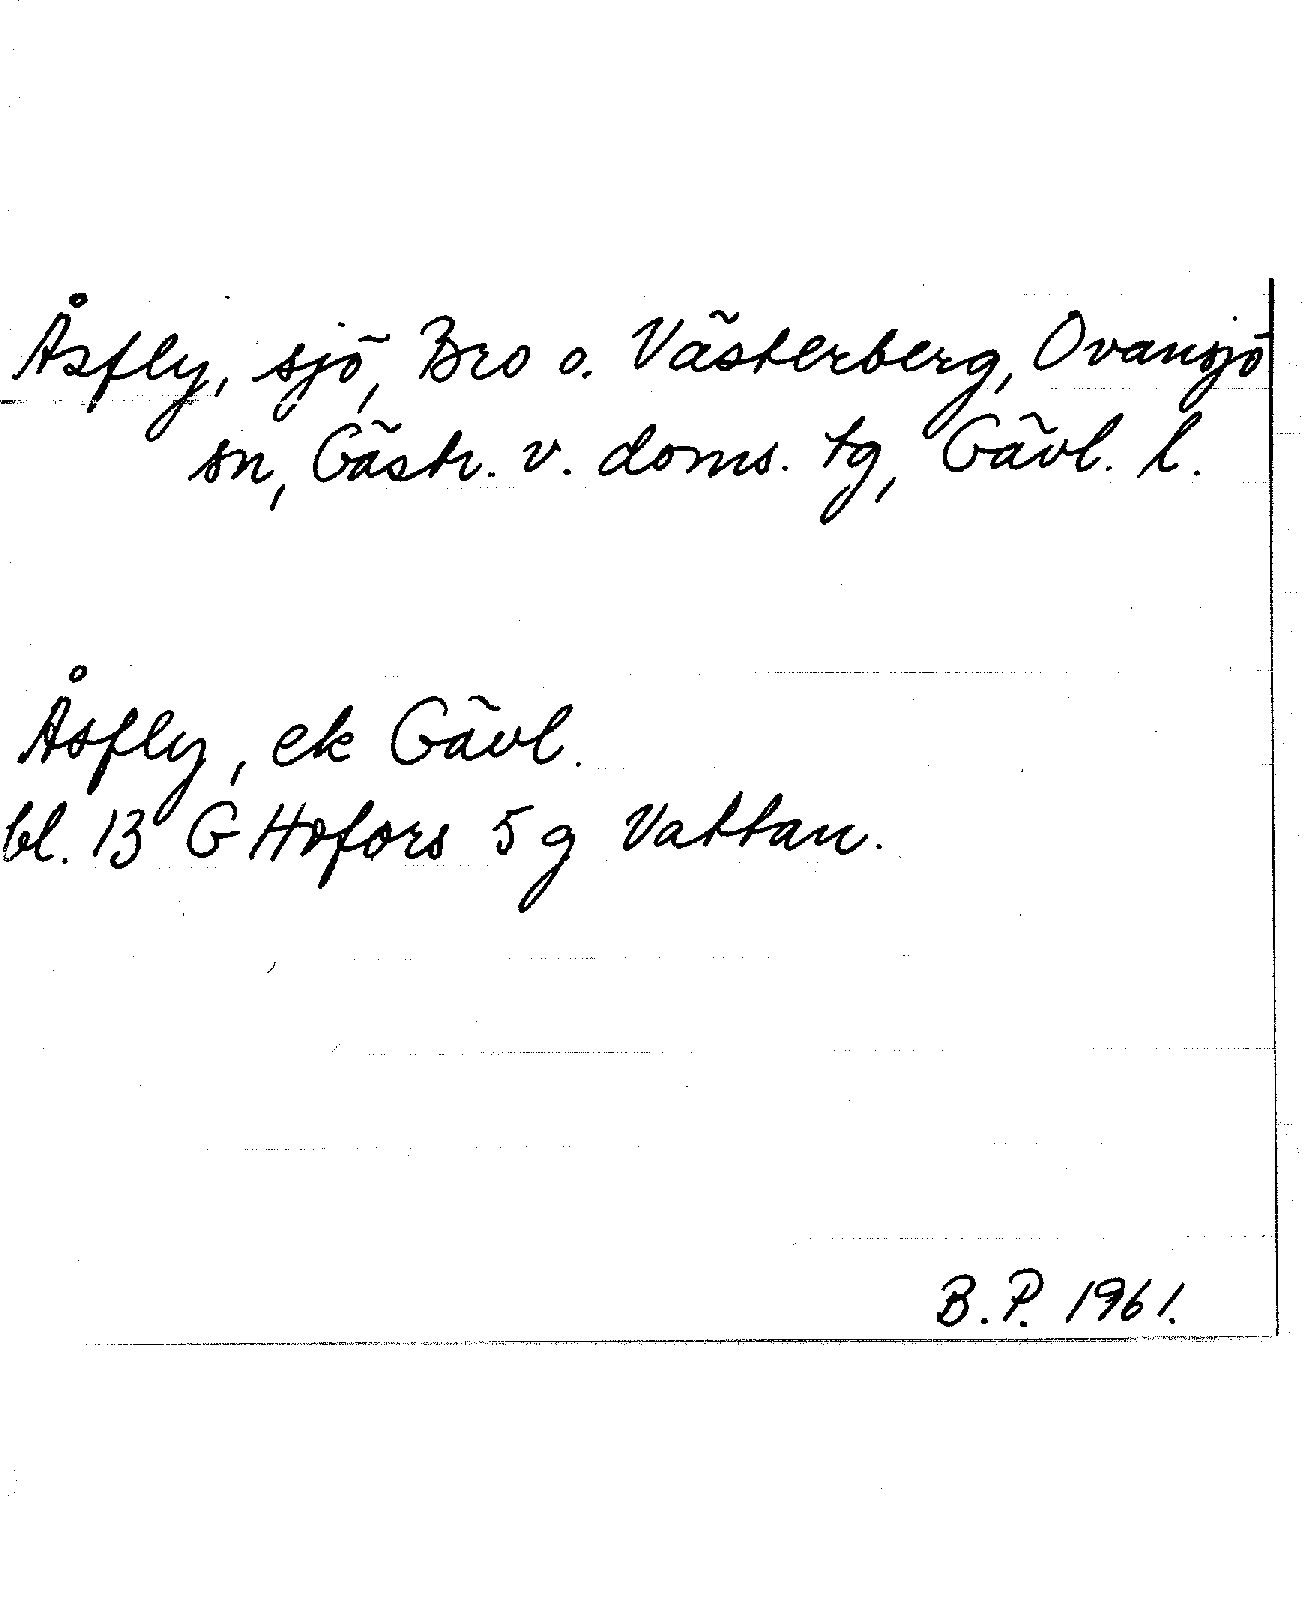 Åsfly, sjö, Bro o. Västerberg, Ovansjö
sn, Gästr. v. doms. tg, Gävl. l.
Åsfly, ek Gävl.
bl. 13 G Hofors 5 g Vattan.
B.P. 1961.